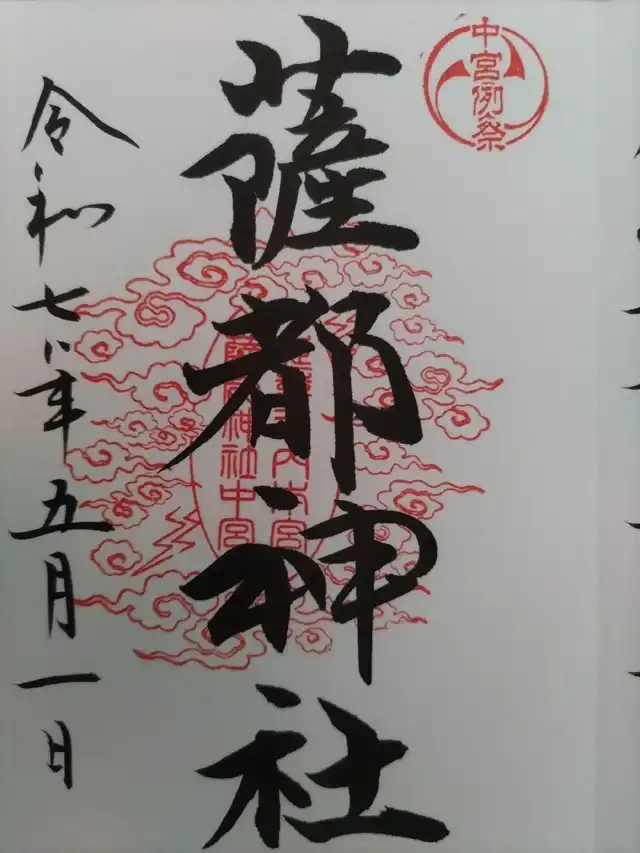 中宮例祭
薩都神社
薩都神社中宮
令和七年五月一日